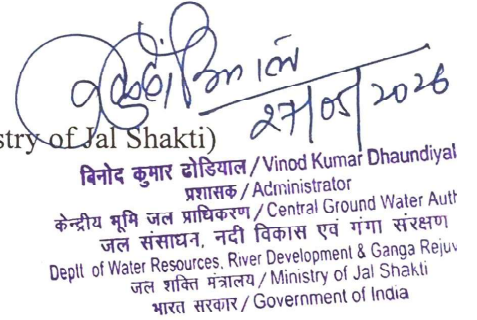 27/05/2026
stry of Jal Shakti)
बिनोद कुमार ढोडियाल / Vinod Kumar Dhaundiyal
प्रशासक / Administrator
केन्द्रीय भूमि जल प्राधिकरण / Central Ground Water Auth
जल संसाधन, नदी विकास एवं गंगा संरक्षण
Deptt of Water Resources, River Development & Ganga Rejuv
जल शक्ति मंत्रालय / Ministry of Jal Shakti
भारत सरकार / Government of India